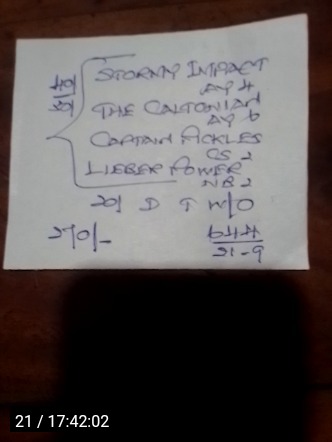 STORMY IMPACT
AY 4
THE CALTONIAN
AY 6
CAPTAIN PICKLES
CS 2
LIEBER POWER
NB 2
20/ D T W/O
270/-
644
21-9
21 / 17:42:02